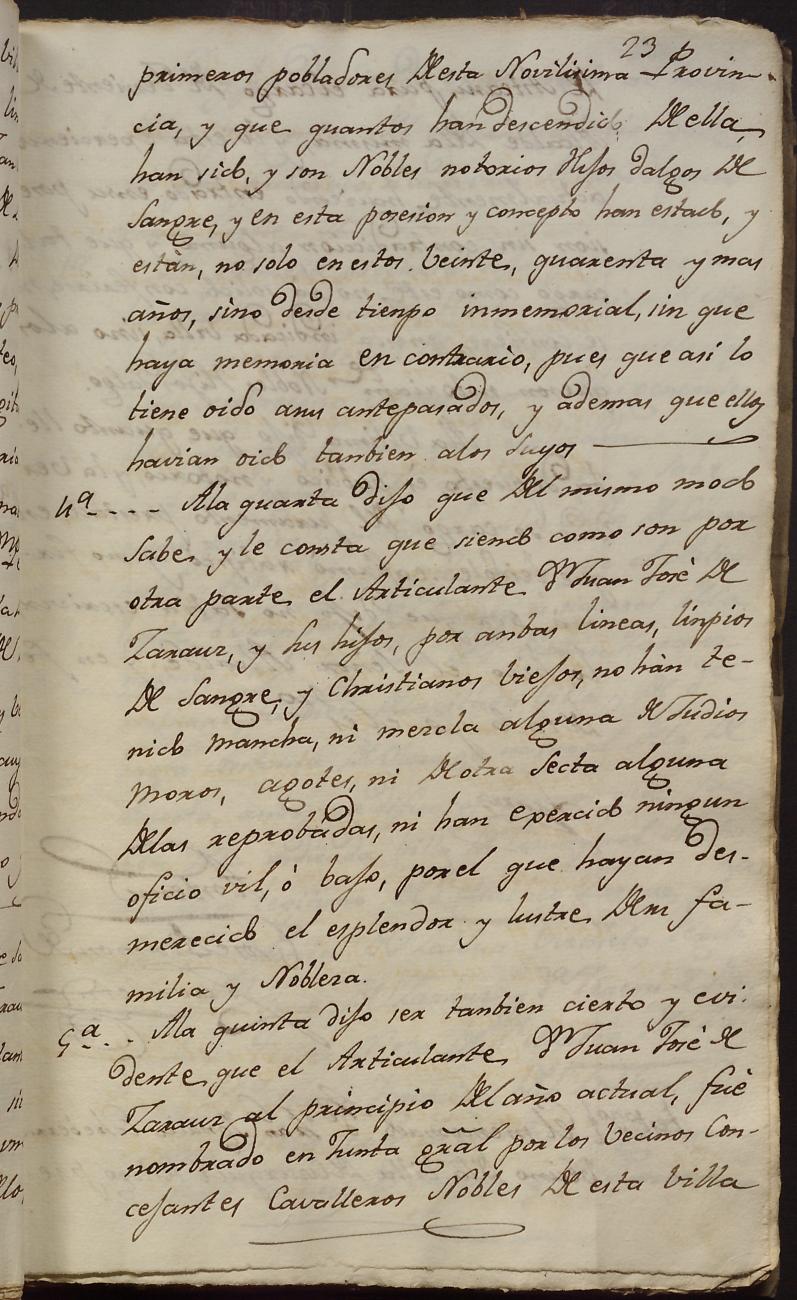 23
primeros pobladores, Desta Novilisima Provin-
cia, y que quantos han descendido Deella,
han sido, y son Nobles notorios Hijos dalgos De
Sangre, y en esta posesion y concepto han estado, y
estàn, no solo en estos veinte, quarenta y mas
años, sino desde tienpo inmemorial, sin que
haya memoria en contrario, pues que asi lo
tiene oido asus antepasados, y ademas que ellos
havian oido tanbien alos suyos
4ª - - - Ala quarta dijo que Del mismo modo
Sabe, y le consta que siendo como son por
otra parte, el Articulante Dn Juan Josè De
Zarauz, y sus hijos, por anbas lineas, linpios
De Sangre, y Christianos viejos, no hàn te-
nido mancha, ni mezcla alguna De Judios
Moros, agotes, ni Deotra Secta alguna
Delas reprobadas, ni han exercido ningun
oficio vil, ò bajo, porel que hayan des-
merecido el esplendor y lustre, Desu fa-
milia y Nobleza.
5ª - . Ala quinta dijo ser tanbien cierto y evi-
dente, que el Articulante, Dn Juan Josè De
Zarauz al principio Delaño actual, fuè
nombrado en Junta gral por los vecinos Con-
cejantes Cavalleros Nobles De esta Villa